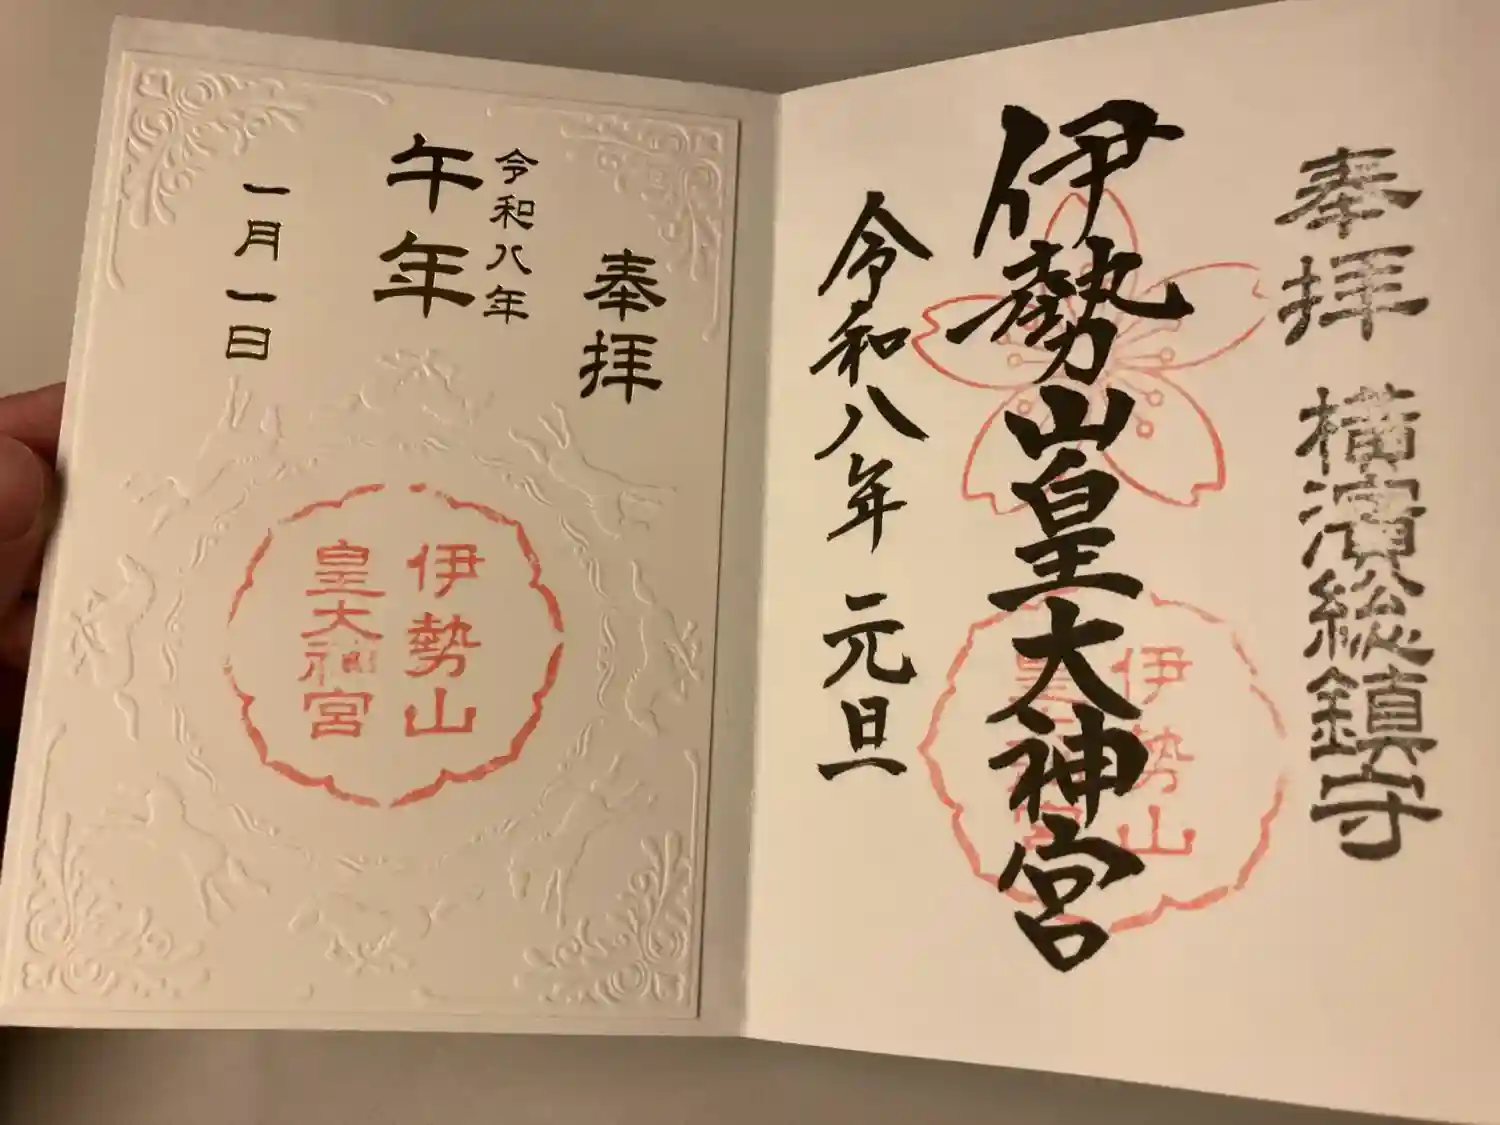 奉拝
横濱総鎮守
伊勢山皇大神宮
伊勢山
皇大神宮
令和八年 元旦
奉拝
令和八年
午年
一月一日
伊勢山
皇大神宮